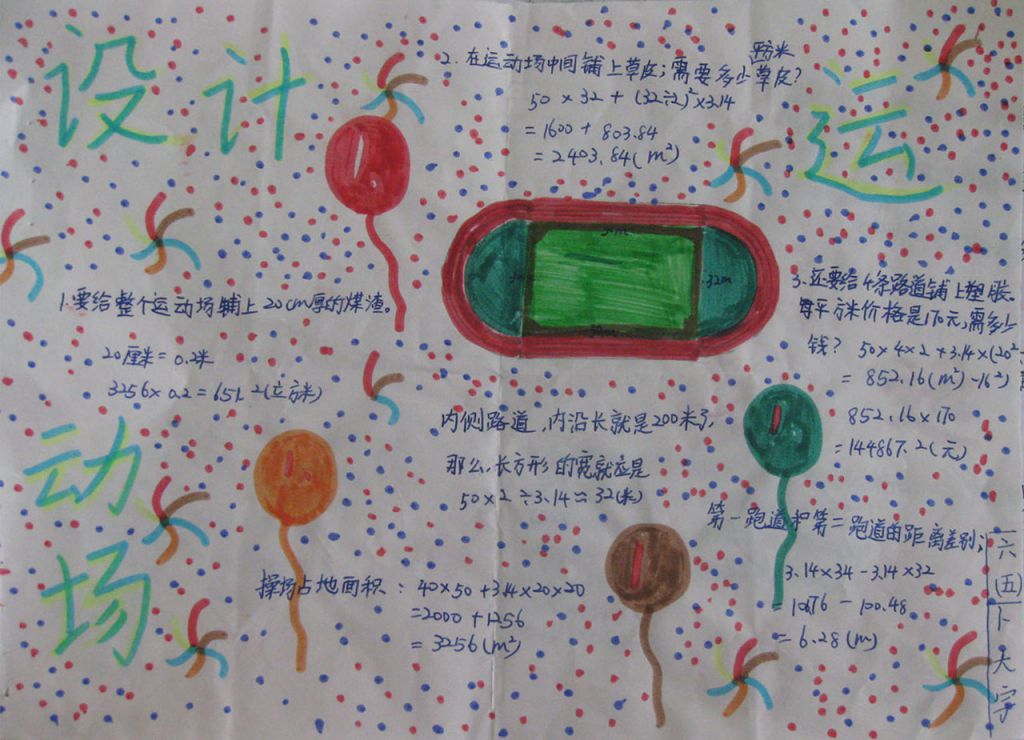 设计运动场
1.要给整个运动场铺上20cm厚的煤渣。
20厘米=0.2米
3256×0.2=651.2(立方米)
2.在运动场中间铺上草皮;需要多少平方米草皮?
50×32+(32÷2)²×3.14
=1600+803.84
=2403.84(m²)
50m
32m
3.还要给4条路道铺上塑胶。
每平方米价格是170元,需多少
钱? 50×4×2+3.14×(20²
=852.16(m²) -16²)
852.16×170
=144867.2(元)
内侧路道,内沿长就是200米了,
那么,长方形的宽就应是
50×2÷3.14≈32(米)
操场占地面积:40×50+3.14×20×20
=2000+1256
=3256(m²)
第一跑道和第二跑道的距离差别;
3.14×34-3.14×32
=106.76-100.48
=6.28(m)
六(五)卜天宇